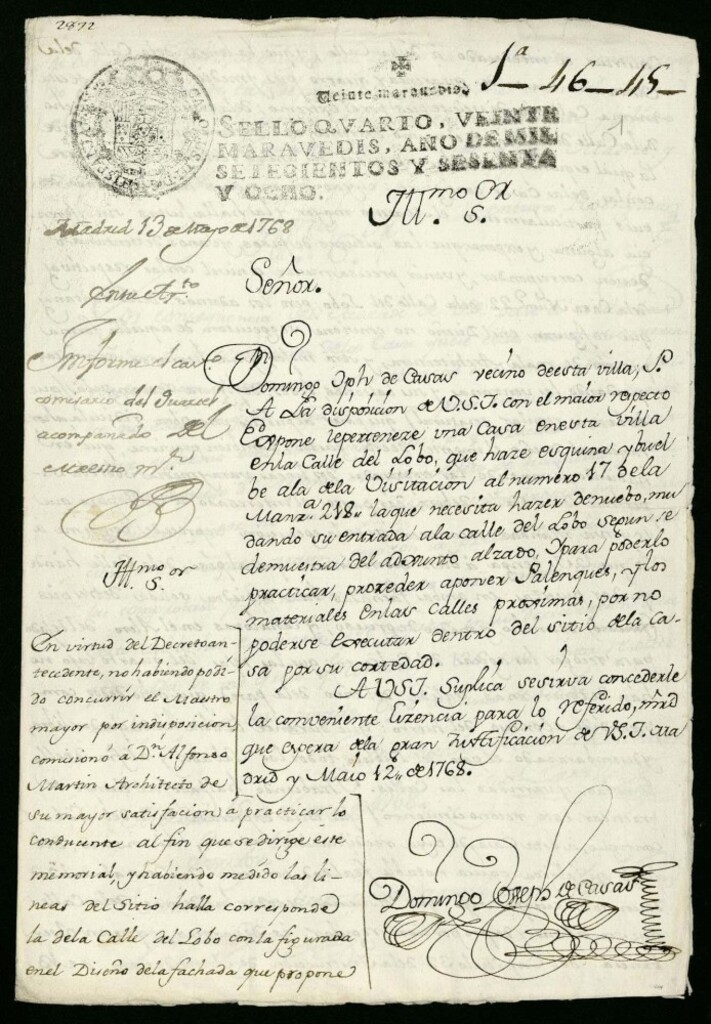 2892
1ª-46-45-
Veinte maravedis.
SELLO QVARTO, VEINTE
MARAVEDIS, AÑO DE MIL
SETECIENTOS Y SESENTA
Y OCHO.
Yll.mo Or
S.
Madrid 13 de Mayo de 1768
En su Ay.to
Informe el cav.o
comisario del Quartel
acompañado del
Maestro m.r
Señor.
Dn Domingo Jph de Casas vecino de esta villa, P.
A La disposicion de V.S.I. con el maior respecto
Expone le perteneze vna Casa en esta villa
en la Calle del Lobo, que haze esquina y buel
be a la de la Visitacion al numero 17 de la
Manz.a 218 la que necesita hazer de nuebo, mu
dando su entrada a la calle del Lobo segun se
demuestra del adjunto alzado, Y para poderlo
practicar, prozeder a poner Palenques, y los
materiales en las calles proximas, por no
poderse Executar dentro del sitio de la Ca-
sa por su cortedad.
A VSI. Suplica se sirva concederle
la conveniente lizencia para lo referido, mrd
que espera de la gran Justificacion de V.S.I. Ma
drid y Maio 12 de 1768.
Domingo Joseph de Casas
Yll.mo or
S.
En virtud del Decreto an-
tecedente, no habiendo podi-
do concurrir el Maestro
mayor por indisposicion
comisionó á D.n Alfonso
Martin Architecto de
su mayor satisfacion á practicar lo
conducente al fin que se dirige este
memorial, y habiendo medido las li-
neas del Sitio halla corresponde
la de la Calle del Lobo con la figurada
en el Diseño de la fachada que propone